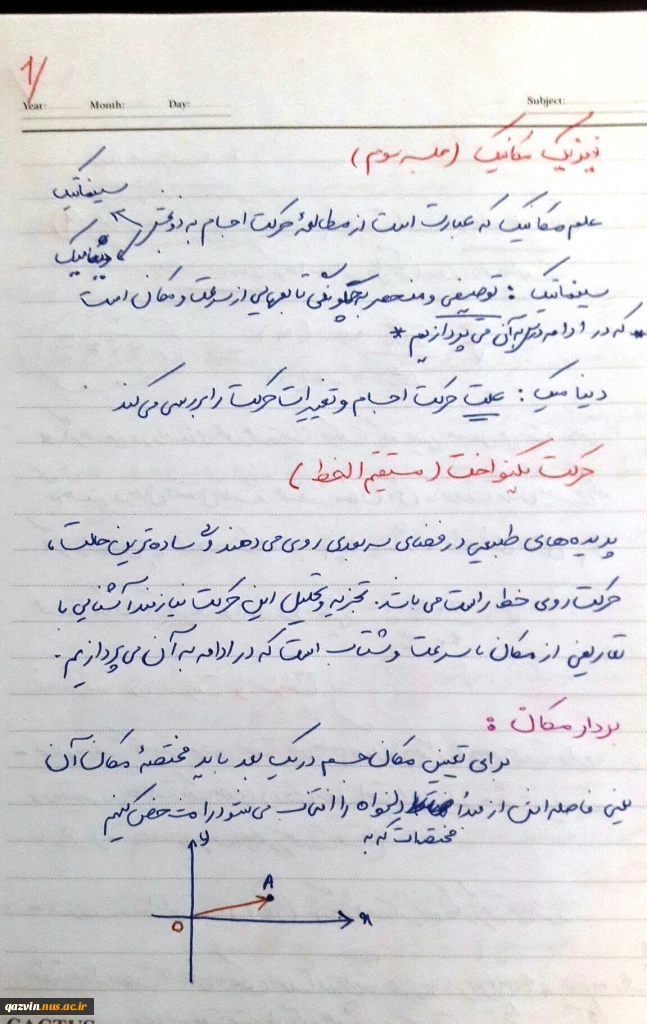 1/
Year: Month: Day: Subject:
فیزیک مکانیک (جلسه سوم)
سینماتیک
علم مکانیک که عبارت است از مطالعهٔ حرکت اجسام به دو بخش
دینامیک
سینماتیک : توصیفی و منحصر به چگونگی تابعهایی از سرعت و مکان است
* که در ادامه درس به آن می پردازیم *
دینامیک : علت حرکت اجسام و تغییرات حرکت را بررسی می کند
حرکت یکنواخت (مستقیم الخط)
پدیده های طبیعی در فضای سه بعدی روی می دهند و ساده ترین حالت ،
حرکت روی خط راست می باشد . تجزیه و تحلیل این حرکت نیازمند آشنایی با
تعاریفی از مکان ، سرعت و شتاب است که در ادامه به آن می پردازیم .
بردار مکان :
برای تعیین مکان جسم در یک بعد باید مختصهٔ مکان آن
یعنی فاصله اش از مبدأ دلخواه را انتخاب می شود را مشخص کنیم
مختصات که به
y
A
O x
qazvin.nus.ac.ir
CACTUS